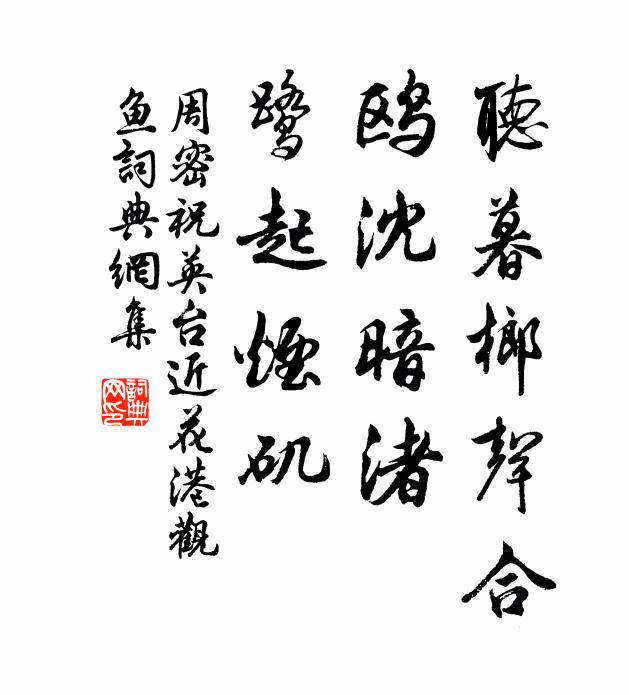 聽暮榔聲合
鸥沈暗渚
鹭起煙矶
周密祝英台近花港觀
魚詞典網集
詞典
网印